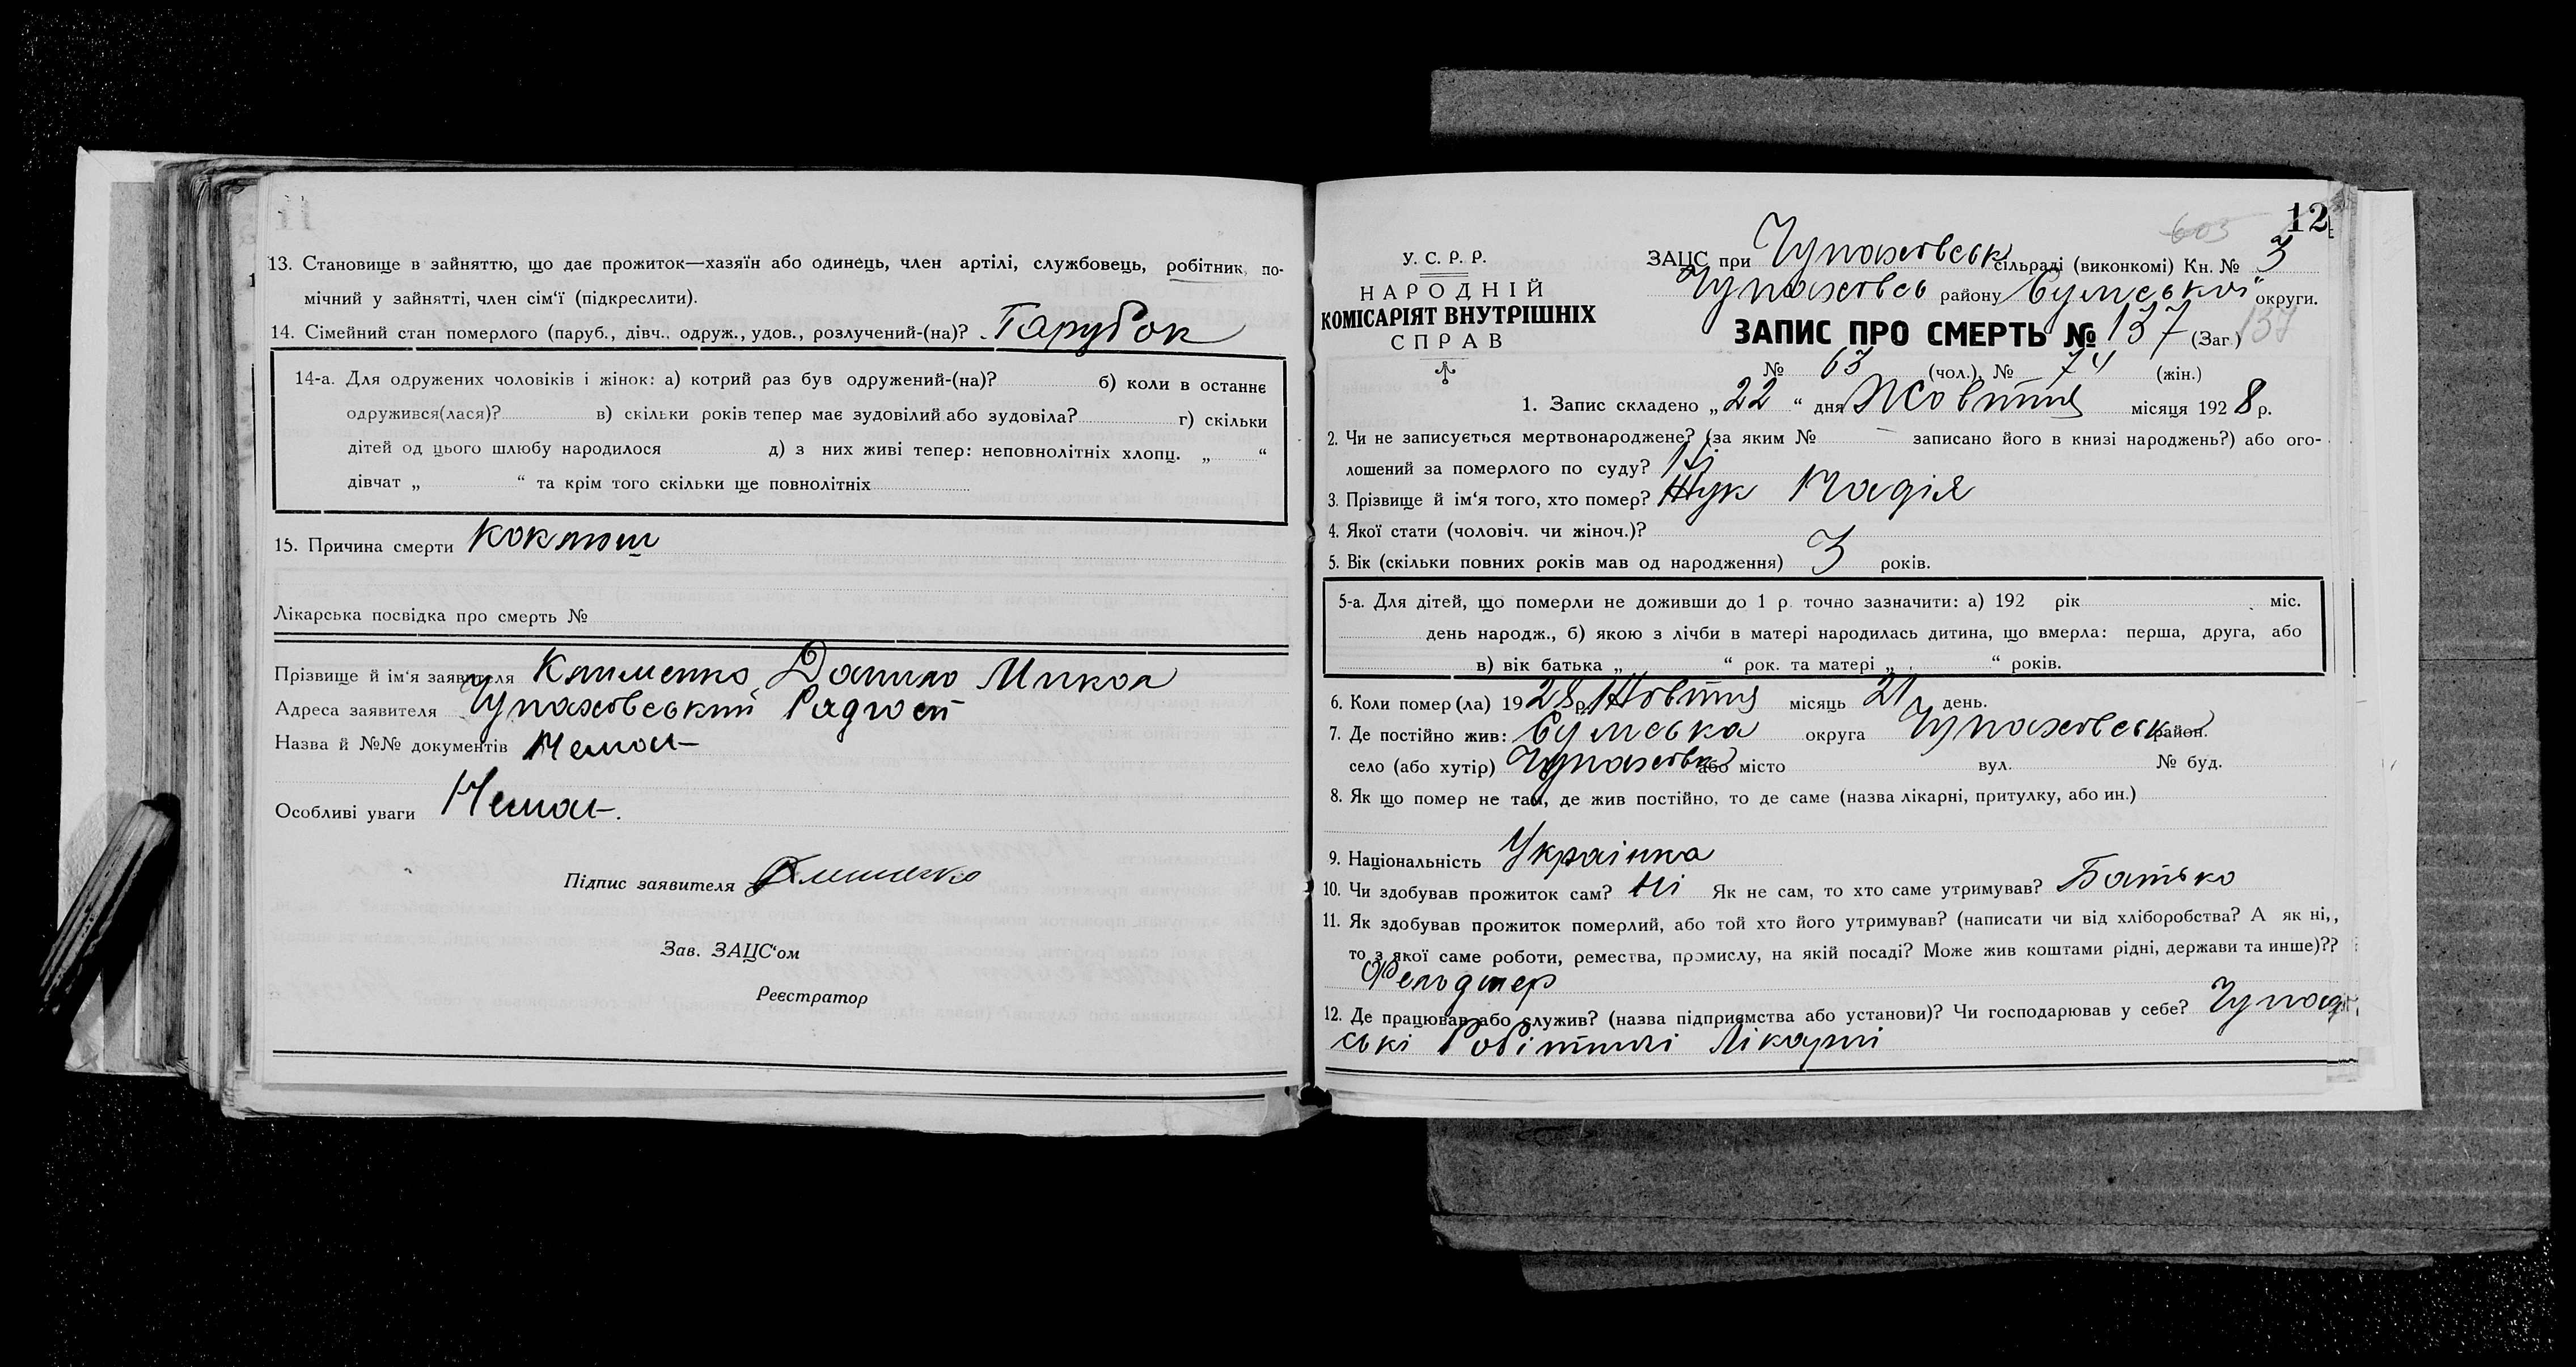 13. Становище в зайняттю, що дає прожиток—хазяїн або одинець, член артілі, службовець, робітник, по-
мічний у зайнятті, член сім‘ї (підкреслити).
14. Сімейний стан померлого (паруб., дівч., одруж., удов., розлучений-(на)? Парубок
14-а. Для одружених чоловіків і жінок: а) котрий раз був одружений-(на)? б) коли в останнє
одружився(лася)? в) скільки років тепер має зудовілий або зудовіла? г) скільки
дітей од цього шлюбу народилося д) з них живі тепер: неповнолітніх хлопц. „ “
дівчат „ “ та крім того скільки ще повнолітніх
15. Причина смерти Коклюш
Лікарська посвідка про смерть №
Прізвище й ім‘я заявителя Клименко Данило Микол
Адреса заявителя Чупахвський Радгосп
Назва й №№ документів Немає
Особливі уваги Немає.
Підпис заявителя Клименко
Зав. ЗАЦС‘ом
Реєстратор
603 12
У. С. Р. Р.
НАРОДНІЙ
КОМІСАРІЯТ ВНУТРІШНІХ
СПРАВ
ЗАЦС при Чупаховськ сільраді (виконкомі) Кн. № 3
Чупаховсь району Сумської округи.
ЗАПИС ПРО СМЕРТЬ № 137 (Заг.) 137
№ 63 (чол.), № 74 (жін.)
1. Запис складено „22“ дня Жовтня місяця 1928 р.
2. Чи не записується мертвонароджене? (за яким № — записано його в книзі народжень?) або ого-
лошений за померлого по суду? Ні
3. Прізвище й ім‘я того, хто помер? Жук Надія
4. Якої стати (чоловіч. чи жіноч.)?
5. Вік (скільки повних років мав од народження) 3 років.
5-а. Для дітей, що померли не доживши до 1 р. точно зазначити: а) 192 рік міс.
день народж., б) якою з лічби в матері народилась дитина, що вмерла: перша, друга, або
в) вік батька „ “ рок. та матері „ “ років.
6. Коли помер(ла) 1928 р. Жовтня місяць 21 день.
7. Де постійно жив: Сумська округа Чупаховськ район.
село (або хутір) Чупаховка або місто вул. № буд.
8. Як що помер не там, де жив постійно, то де саме (назва лікарні, притулку, або ин.)
9. Національність Українка
10. Чи здобував прожиток сам? Ні Як не сам, то хто саме утримував? Батько
11. Як здобував прожиток померлий, або той хто його утримував? (написати чи від хліборобства? А як ні,,
то з якої саме роботи, ремества, промислу, на якій посаді? Може жив коштами рідні, держави та инше)??
Фельдшер
12. Де працював або служив? (назва підприємства або установи)? Чи господарював у себе?
ські Робітничі Лікарні